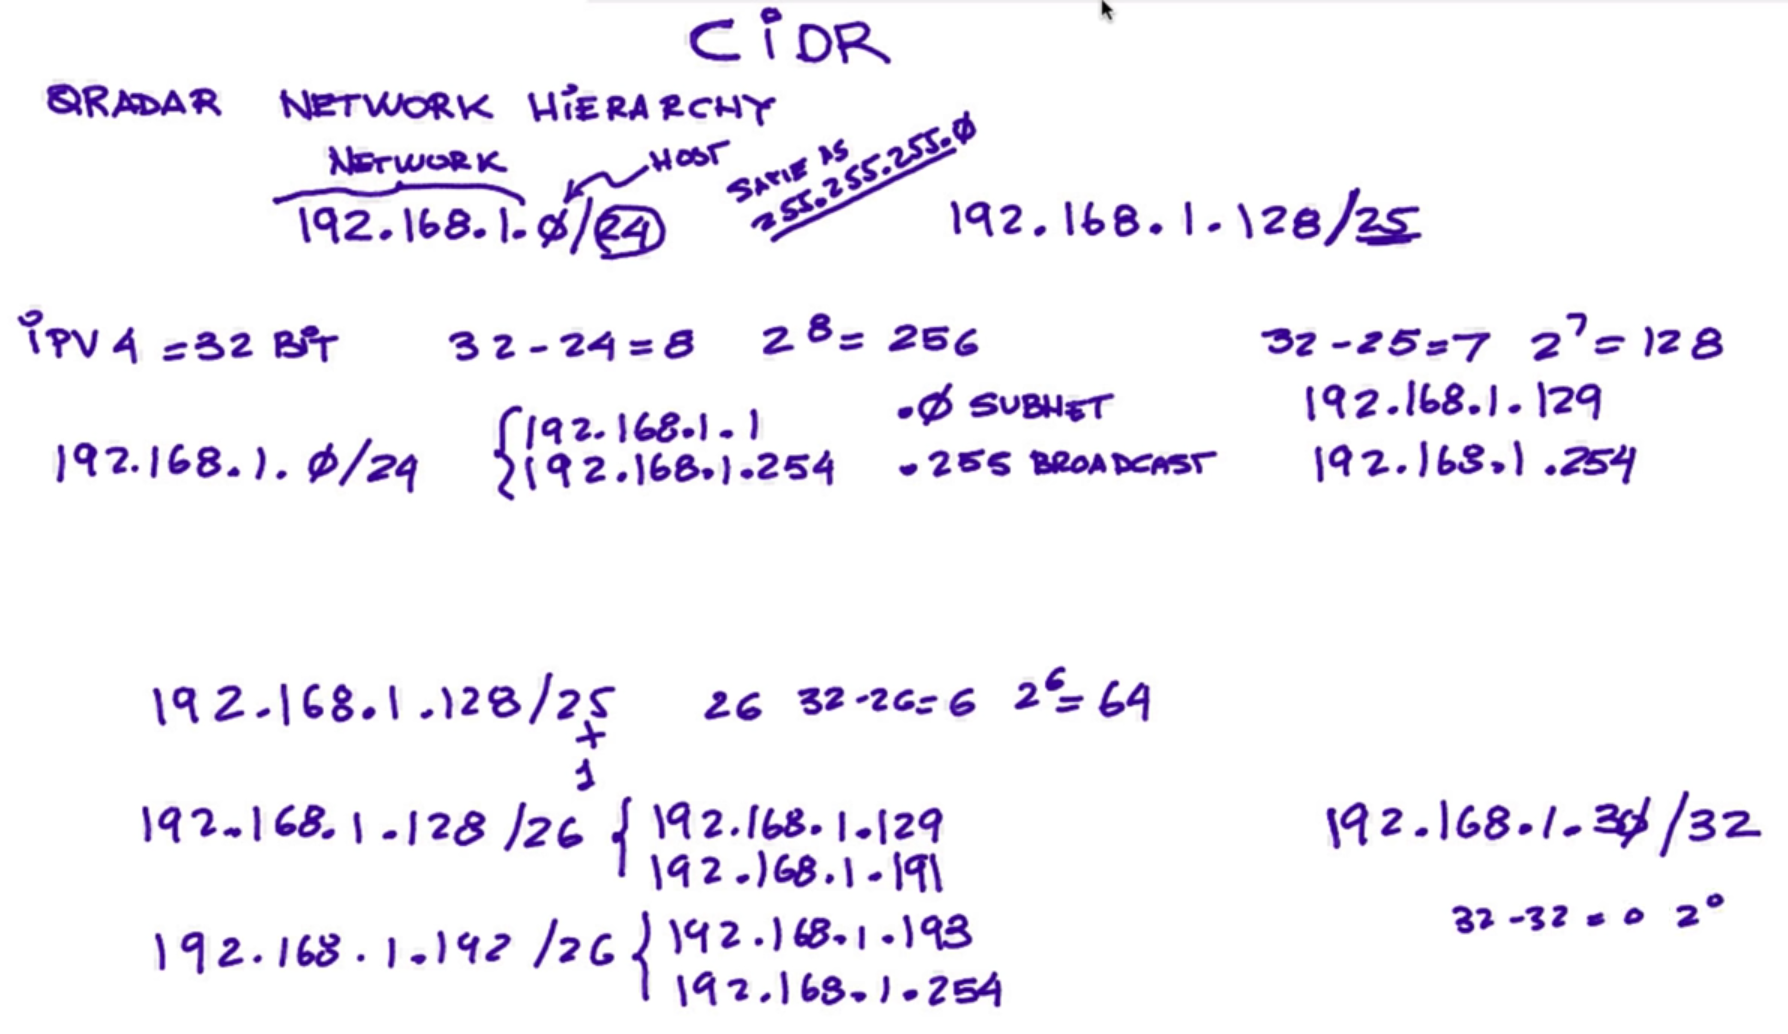 CiDR
QRADAR NETWORK HiERARCHY
NETWORK
HOST
SAME AS
255.255.255.Ø
192.168.1.Ø/24
192.168.1.128/25
iPV4 = 32 BiT
32-24=8 2^8= 256
32-25=7 2^7=128
192.168.1.Ø/24
192.168.1.1
192.168.1.254
.Ø SUBNET
.255 BROADCAST
192.168.1.129
192.168.1.254
192.168.1.128/25
+
1
26 32-26=6 2^6=64
192.168.1.128/26 { 192.168.1.129
192.168.1.191
192.168.1.192/26 { 192.168.1.193
192.168.1.254
192.168.1.3Ø/32
32-32=0 2^0